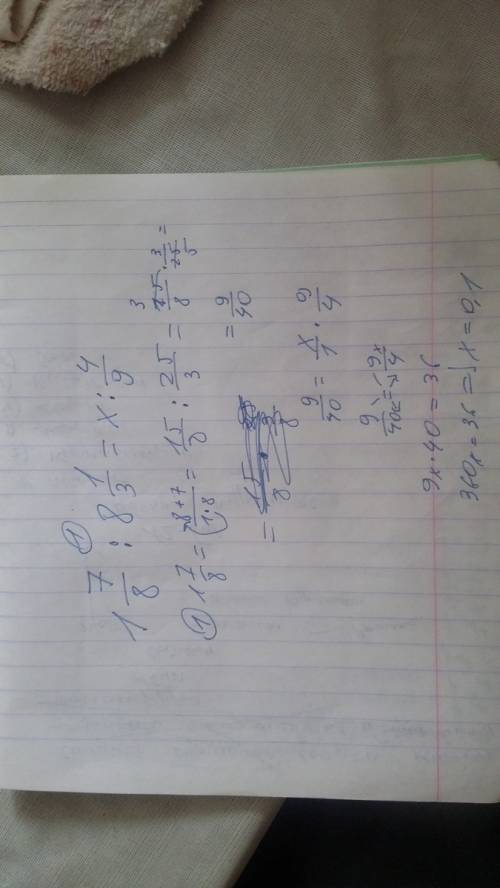 ①
1 7/8 : 8 1/3 = x : 4/9
① 1 7/8 = 8+7/1·8 = 15/8 : 25/3 = 15/8 · 3/25 =
3 5
= 9/40
= 15/8
9/40 = x/1 · 9/4
9/40 = 9x/4
9x·40 = 36
360x = 36 = x = 0,1